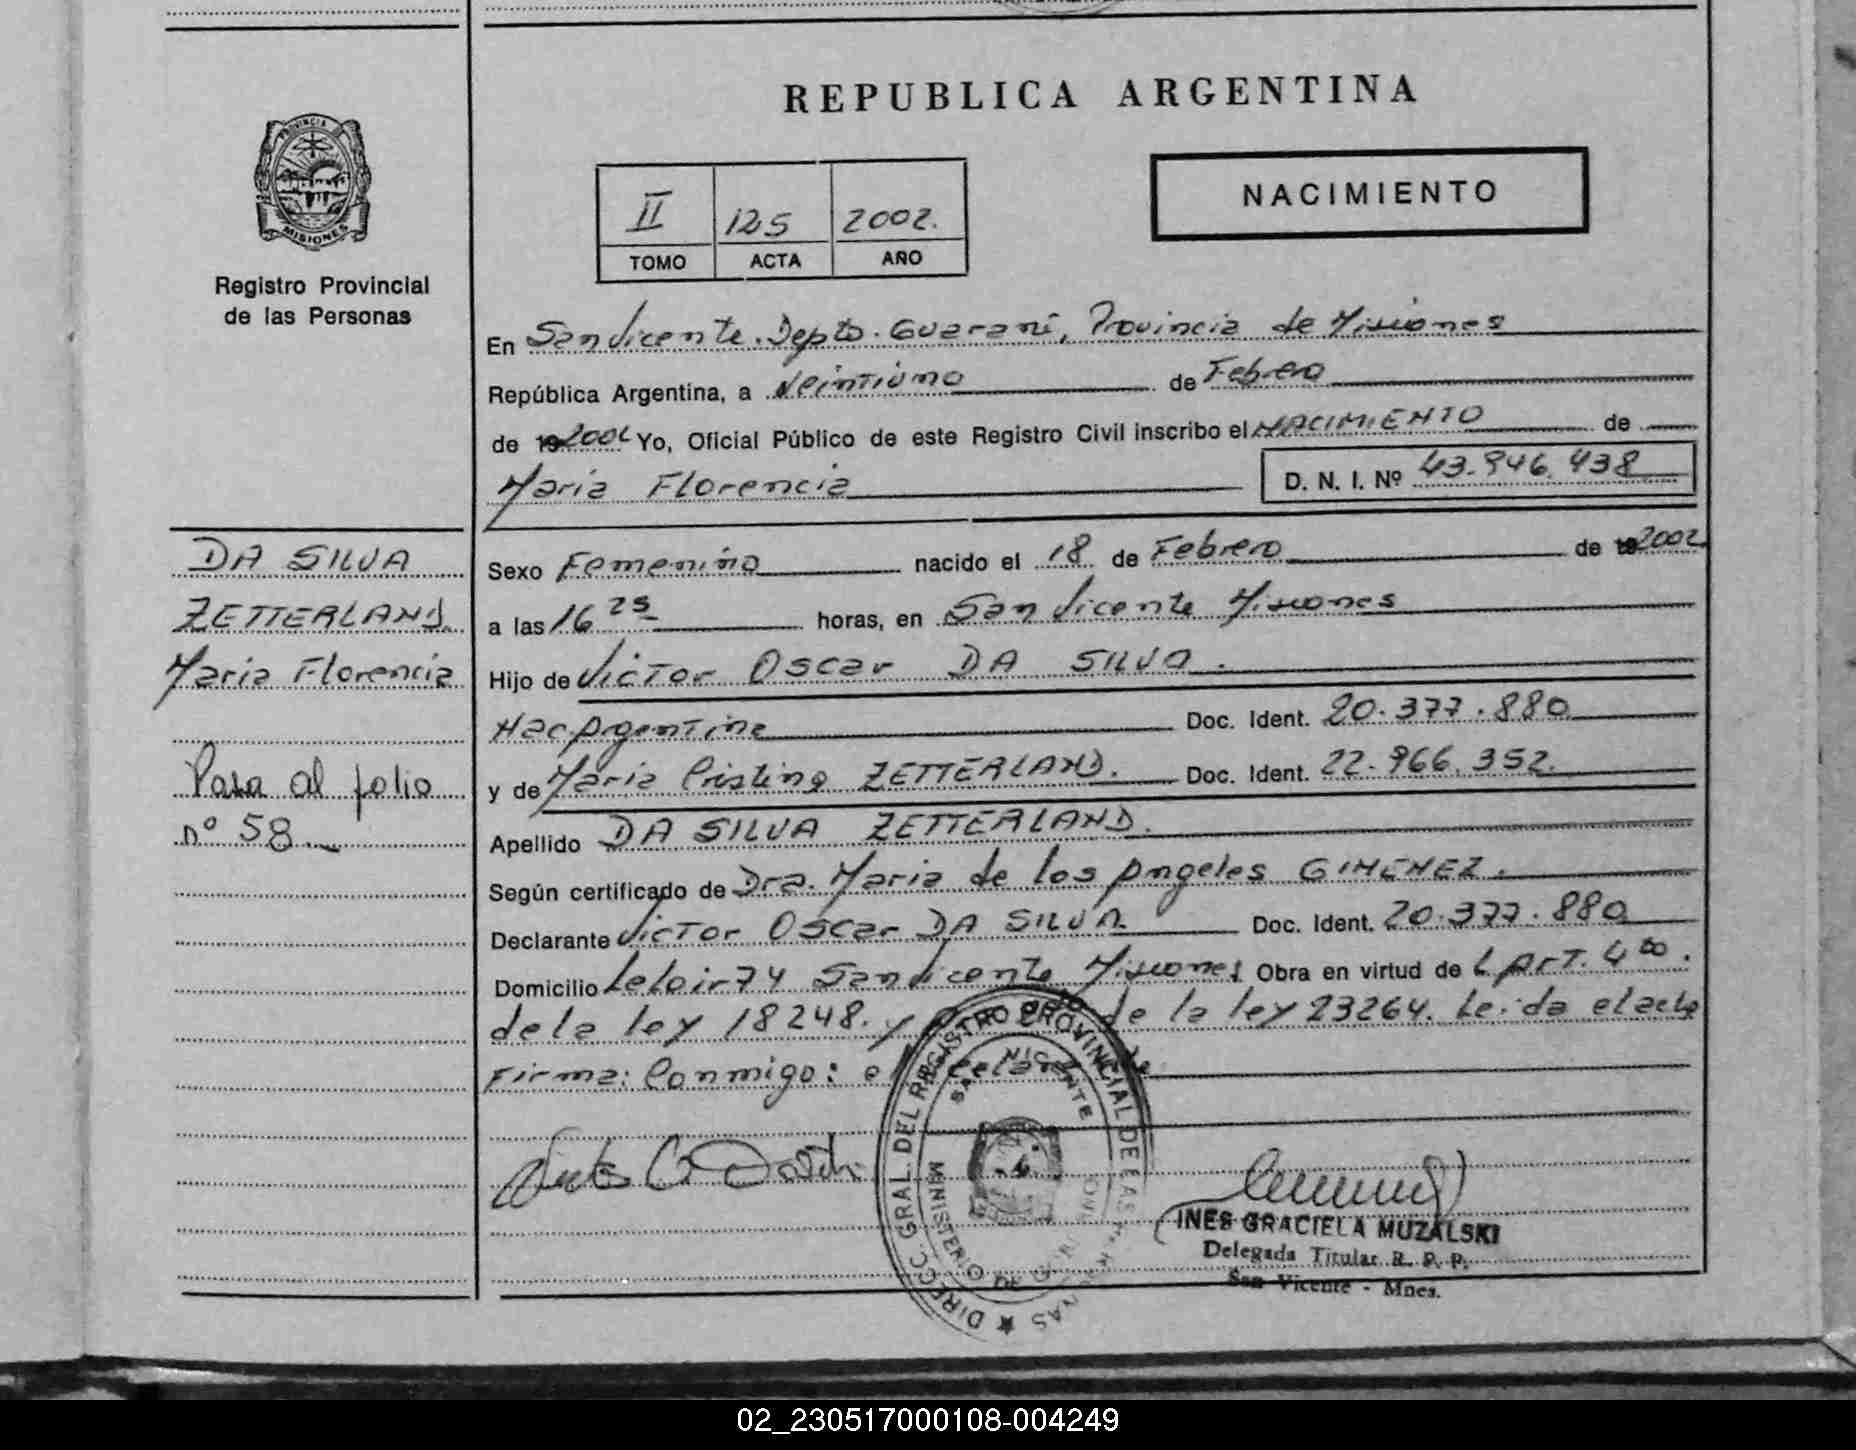 REPUBLICA ARGENTINA
PROVINCIA
MISIONES
Registro Provincial
de las Personas
II 125 2002.
TOMO ACTA AÑO
NACIMIENTO
En San Vicente. Depto. Guaraní, Provincia de Misiones
República Argentina, a Veintiuno de Febrero
de 2002 Yo, Oficial Público de este Registro Civil inscribo el NACIMIENTO de
Maria Florencia D. N. I. Nº 43.946.438
DA SILVA
ZETTERLAND.
Maria Florencia
Pasa al folio
nº 58.-
Sexo Femenino nacido el 18 de Febrero de 2002
a las 16 25 horas, en San Vicente Misiones
Hijo de Victor Oscar DA SILVA.
Nac. Argentina Doc. Ident. 20.377.880
y de Maria Cristina ZETTERLAND. Doc. Ident. 22.966.352.
Apellido DA SILVA ZETTERLAND.
Según certificado de Dra. Maria de los Angeles GIMENEZ.
Declarante Victor Oscar DA SILVA. Doc. Ident. 20.377.880
Domicilio Leloir 74 San Vicente Misiones Obra en virtud de L Art. 4to.
de la ley 18248. y de la ley 23264. Leida el acta
Firma: Conmigo: el
DIRECC. GRAL. DEL REGISTRO PROVINCIAL DE LAS PERSONAS
SAN VICENTE
MINISTERIO DE
INES GRACIELA MUZALSKI
Delegada Titular R. P. P.
San Vicente - Mnes.
02_230517000108-004249